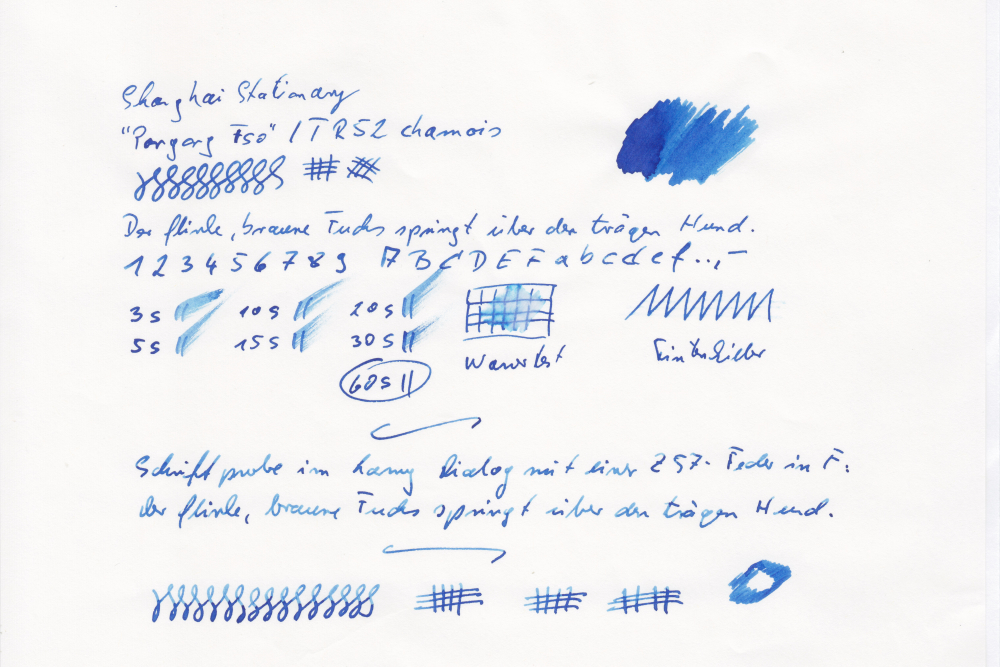 Shanghai Stationary
"Pergorg F50" / TR52 chamois
Der flinke, braune Fuchs springt über den trägen Hund.
1 2 3 4 5 6 7 8 9 A B C D E F a b c d e f . . , –
3s 10s 20s
5s 15s 30s
60s
Wassertest
Tintenkiller
Schriftprobe im Lamy Dialog mit einer Z57-Feder in F:
der flinke, braune Fuchs springt über den trägen Hund.